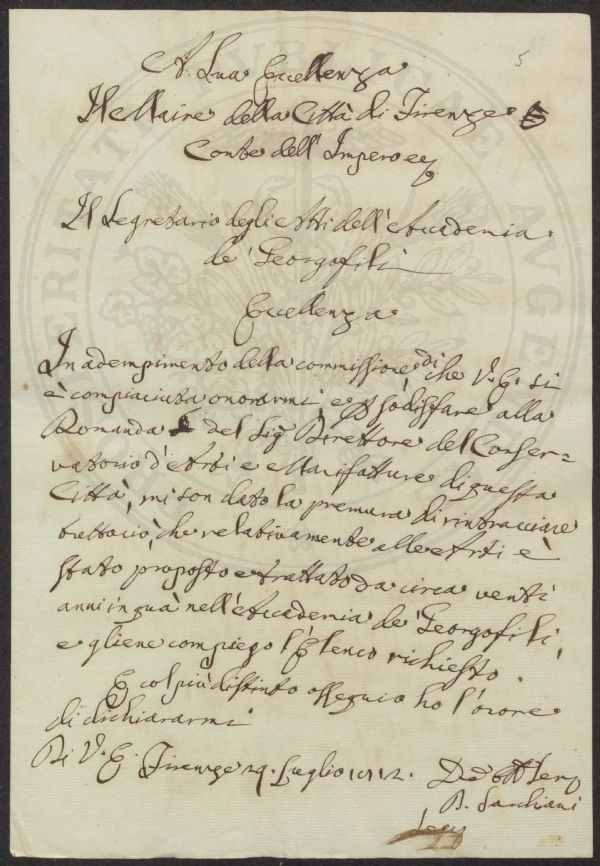 5
A Sua Eccellenza
Il Maire della Città di Firenze
Conte dell'Impero
Il Segretario degli Atti dell'Accademia
de' Georgofili
Eccellenza
In adempimento della commissione di che V. E. si
è compiaciuta onorarmi, e p sodisfare alla
Domanda del Sig Direttore del Conser=
vatorio d'Arti e Manifatture di questa
Città, mi son dato la premura di rintracciare
tuttociò, che relativamente alle Arti è
stato proposto e trattato da circa venti
anni in quà nell'Accademia de' Georgofili,
e gliene compiego l'Elenco richiesto.
E col più distinto ossequio ho l'onore
di dichiararmi
Di V. E. Firenze 29. Luglio 1812.
B. Sarchiani
Segr
POSTERITATI PUBLICAE AUGENDAE